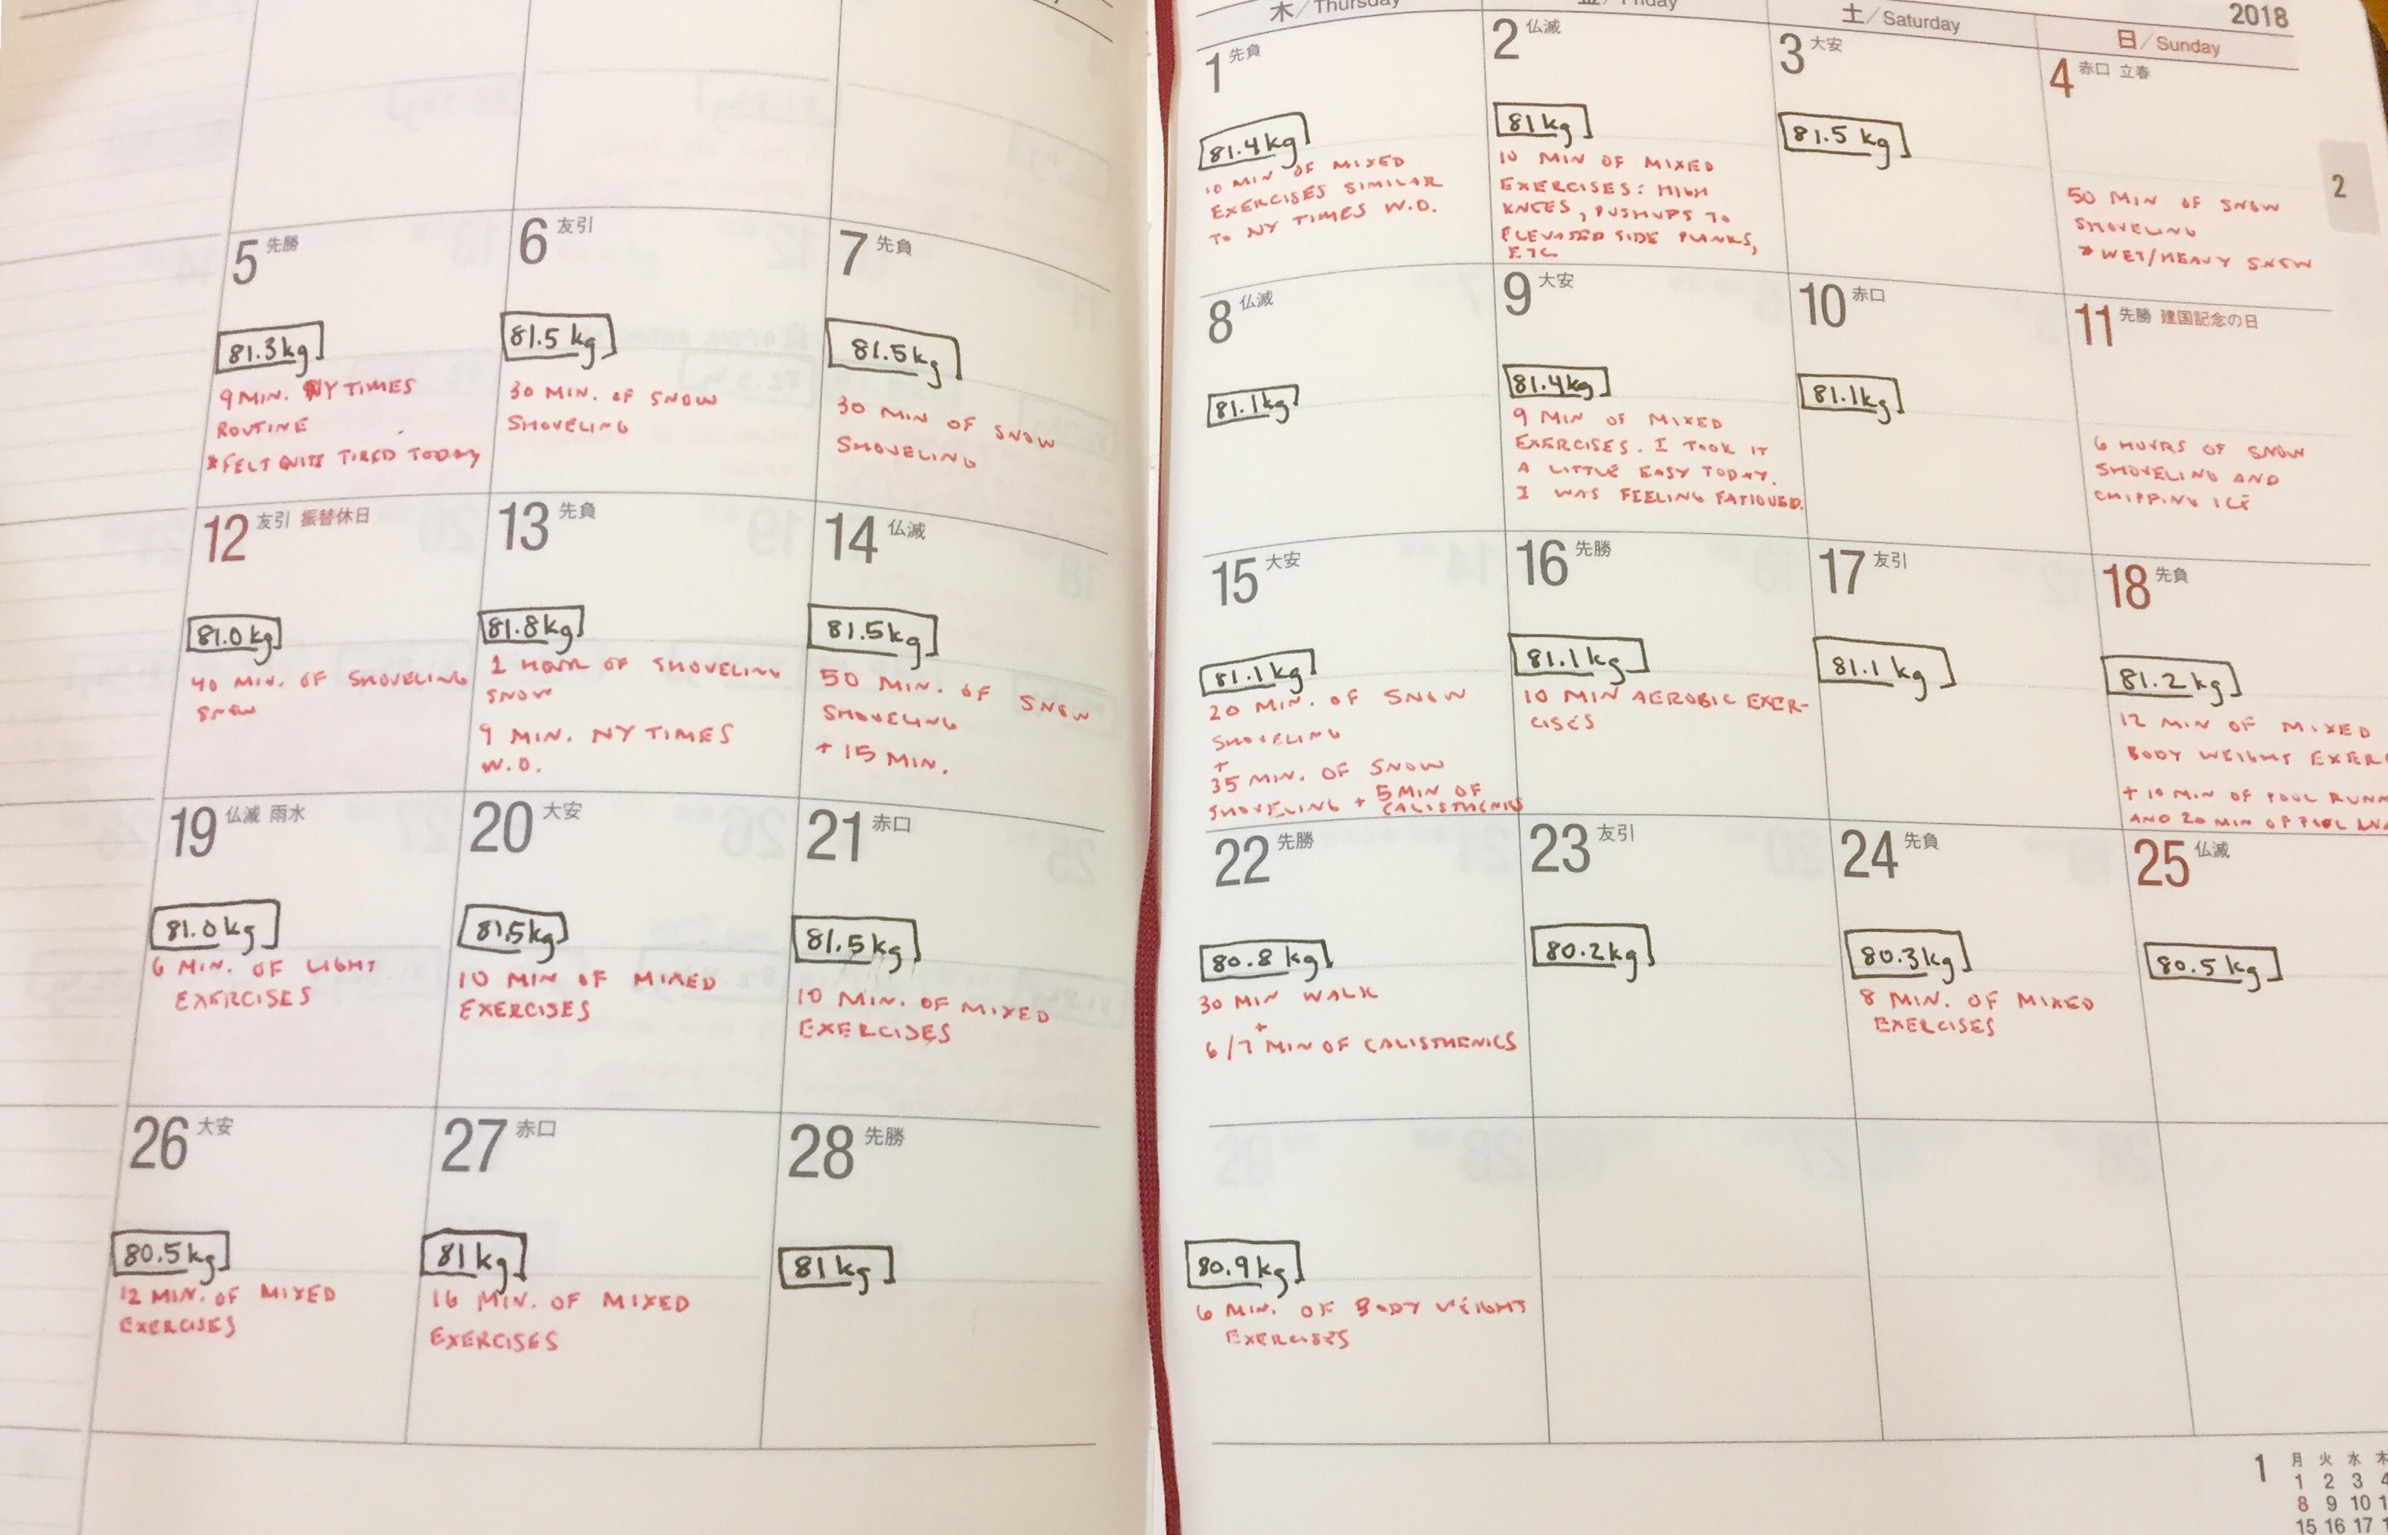 木/Thursday
金/Friday
土/Saturday
2018
日/Sunday
1 先負
81.4kg
10 MIN OF MIXED
EXERCISES SIMILAR
TO NY TIMES W.O.
2 仏滅
81 kg
10 MIN OF MIXED
EXERCISES: HIGH
KNEES, PUSHUPS TO
ELEVATED SIDE PLANKS,
ETC
3 大安
81.5 kg
4 赤口 立春
50 MIN OF SNOW
SHOVELING
* WET/HEAVY SNOW
2
5 先勝
81.3kg
9 MIN. NY TIMES
ROUTINE
*FELT QUITE TIRED TODAY
6 友引
81.5 kg
30 MIN. OF SNOW
SHOVELING
7 先負
81.5kg
30 MIN OF SNOW
SHOVELING
8 仏滅
81.1kg
9 大安
81.4kg
9 MIN OF MIXED
EXERCISES. I TOOK IT
A LITTLE EASY TODAY.
I WAS FEELING FATIGUED.
10 赤口
81.1kg
11 先勝 建国記念の日
6 HOURS OF SNOW
SHOVELING AND
CHIPPING ICE
12 友引 振替休日
81.0kg
40 MIN. OF SHOVELING
SNOW
13 先負
81.8kg
1 HOUR OF SHOVELING
SNOW
9 MIN. NY TIMES
W.O.
14 仏滅
81.5kg
50 MIN. OF SNOW
SHOVELING
+ 15 MIN.
15 大安
81.1kg
20 MIN. OF SNOW
SHOVELING
+
35 MIN. OF SNOW
SHOVELING + 5 MIN OF
CALISTHENICS
16 先勝
81.1kg
10 MIN AEROBIC EXER-
CISES
17 友引
81.1 kg
18 先負
81.2 kg
12 MIN OF MIXED
BODY WEIGHT EXER
+ 10 MIN OF POOL RUNN
AND 20 MIN OF POOL
19 仏滅 雨水
81.0kg
6 MIN. OF LIGHT
EXERCISES
20 大安
81.5kg
10 MIN OF MIXED
EXERCISES
21 赤口
81.5kg
10 MIN. OF MIXED
EXERCISES
22 先勝
80.8 kg
30 MIN WALK
+
6/7 MIN OF CALISTHENICS
23 友引
80.2kg
24 先負
80.3kg
8 MIN. OF MIXED
EXERCISES
25 仏滅
80.5 kg
26 大安
80.5kg
12 MIN. OF MIXED
EXERCISES
27 赤口
81 kg
16 MIN. OF MIXED
EXERCISES
28 先勝
81 kg
80.9kg
6 MIN. OF BODY WEIGHT
EXERCISES
1
月 火 水 木
1 2 3 4
8 9 10 1
15 16 17 1